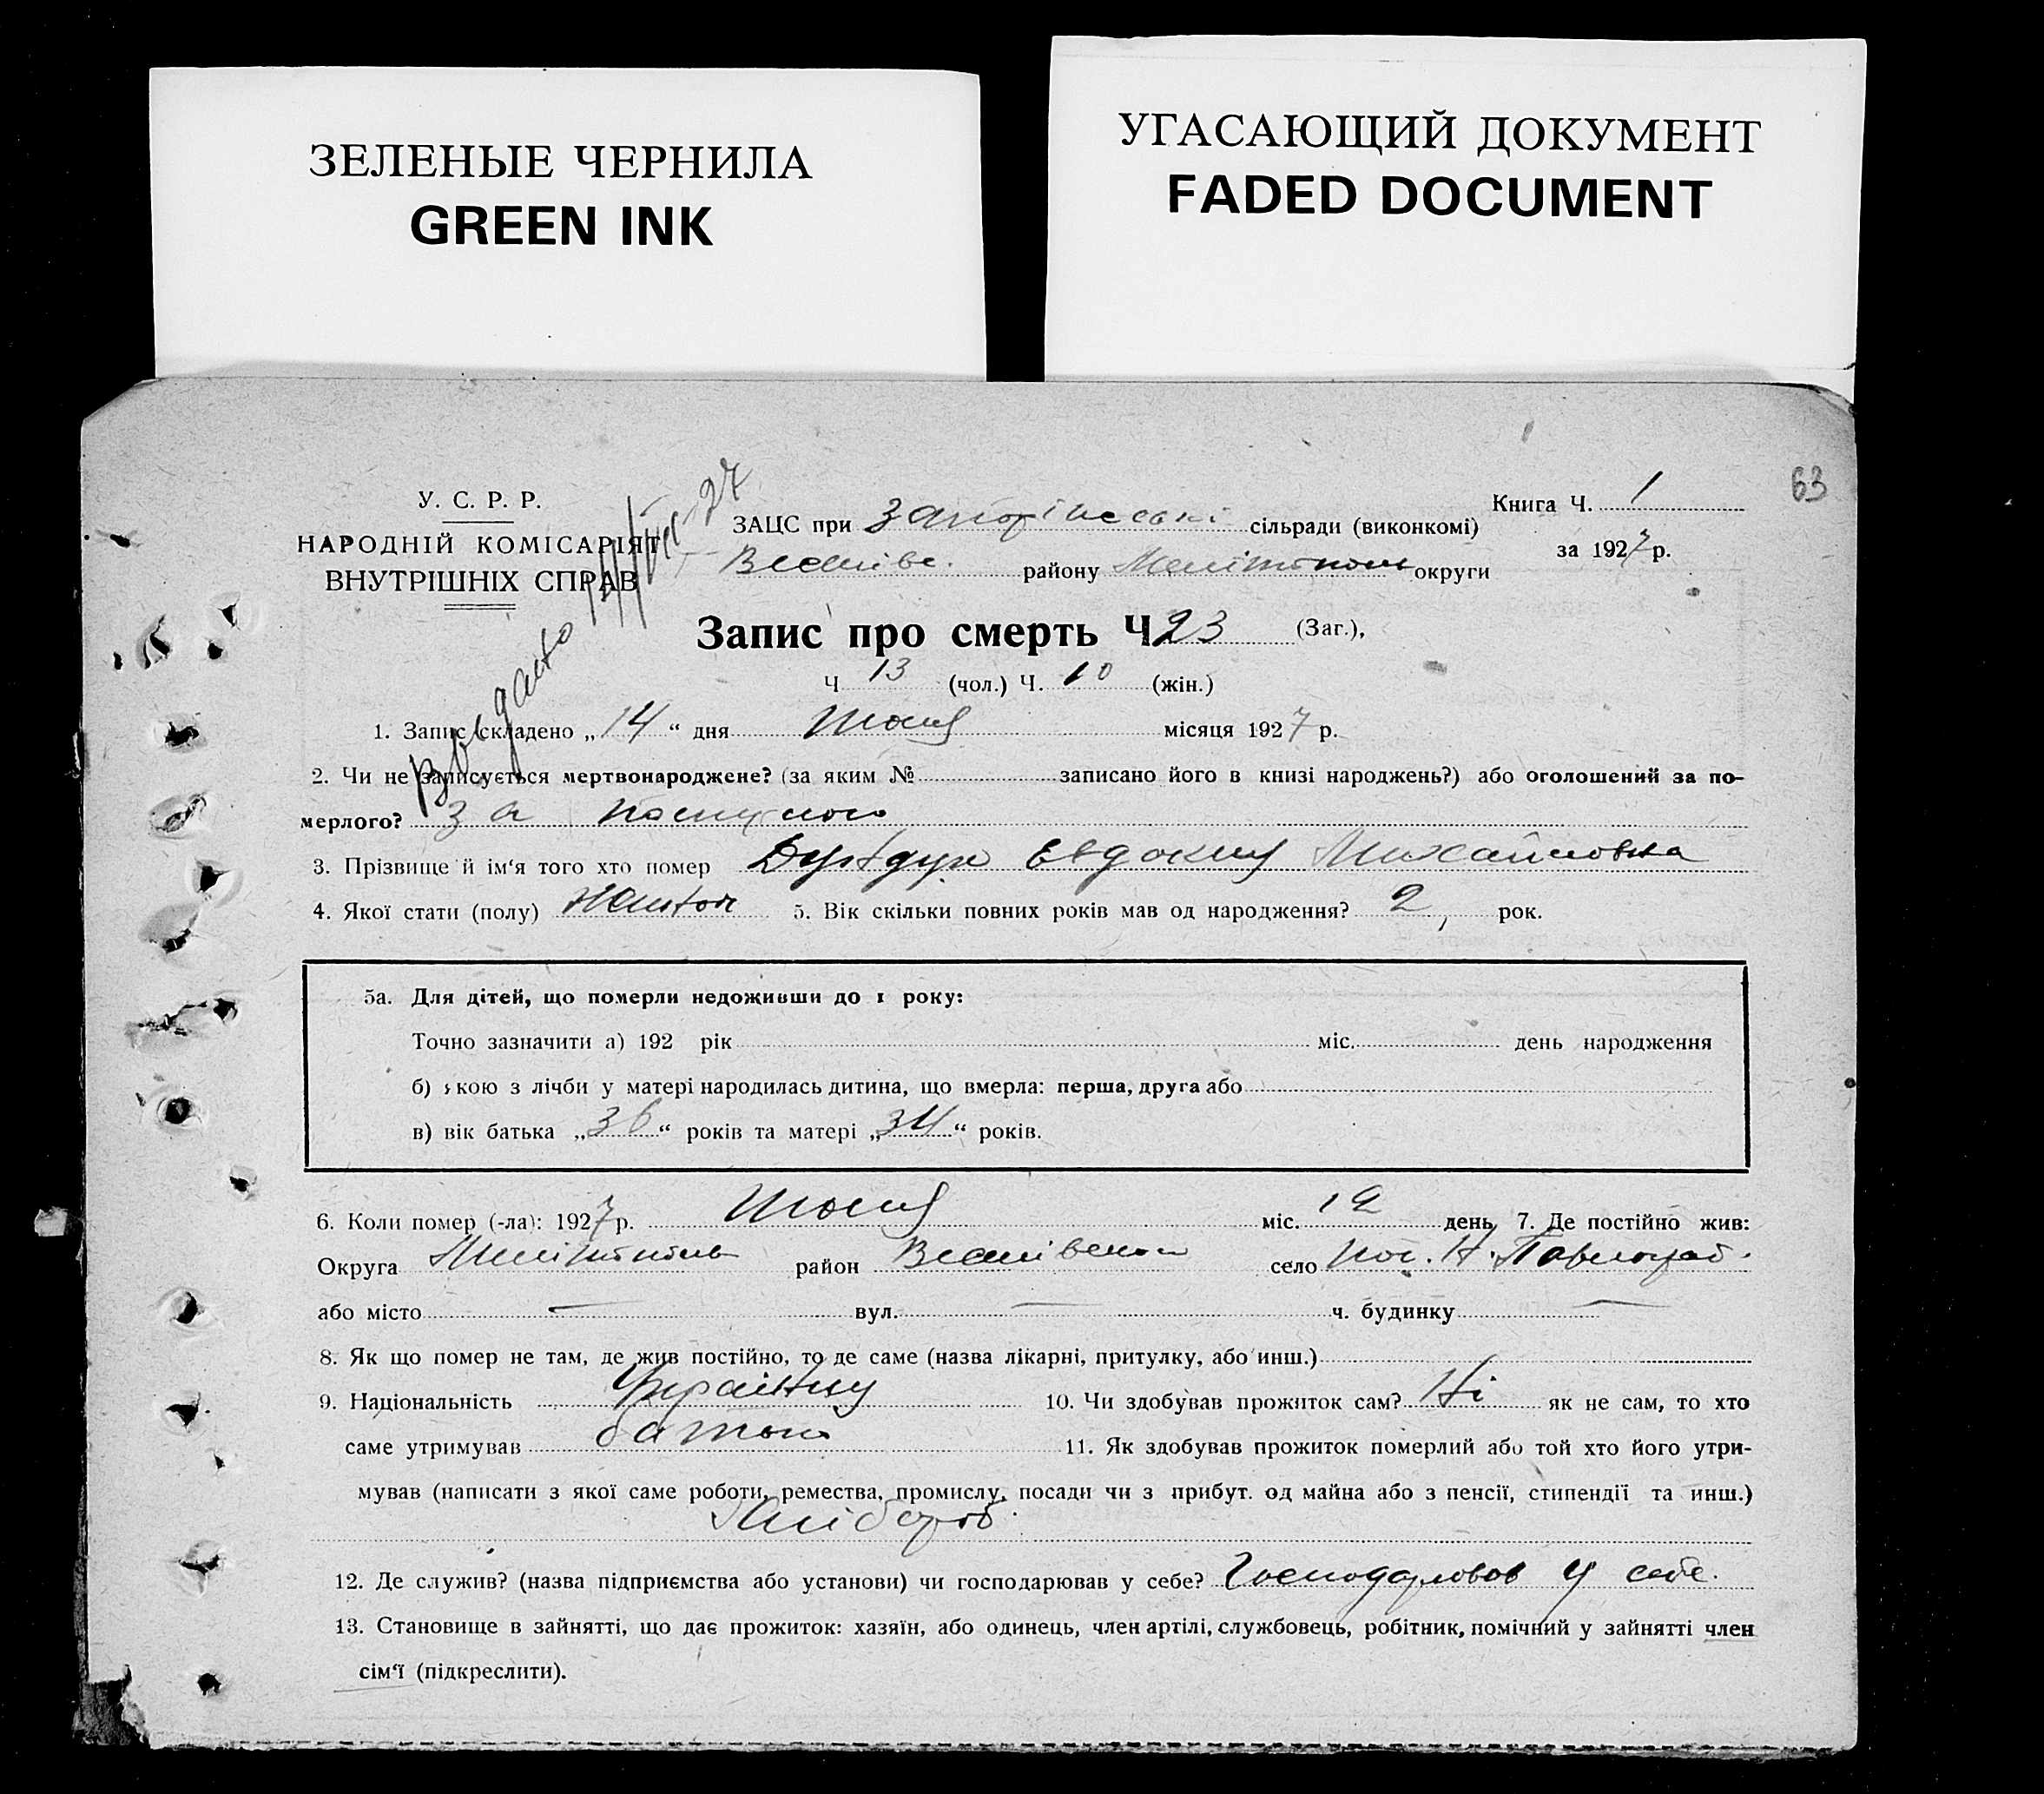 ЗЕЛЕНЫЕ ЧЕРНИЛА
GREEN INK
УГАСАЮЩИЙ ДОКУМЕНТ
FADED DOCUMENT
63
У. С. Р. Р.
НАРОДНІЙ КОМІСАРІЯТ
ВНУТРІШНІХ СПРАВ
ЗАЦС при сільради (виконкомі)
району Мелітополь округи
Книга Ч. 1
за 1927 р.
Запис про смерть Ч 23 (Заг.),
Ч 13 (чол.) Ч. 10 (жін.)
1. Запис складено „14“ дня місяця 1927 р.
2. Чи не записується мертвонароджене? (за яким № записано його в книзі народжень?) або оголошений за по-
мерлого? за
3. Прізвище й ім'я того хто помер Евдокия Михайловна
4. Якої стати (полу) 5. Вік скільки повних років мав од народження? 2 рок.
5а. Для дітей, що померли недоживши до 1 року:
Точно зазначити а) 192 рік міс. день народження
б) якою з лічби у матері народилась дитина, що вмерла: перша, друга або
в) вік батька „36“ років та матері „34“ років.
6. Коли помер (-ла): 1927 р. міс. 12 день 7. Де постійно жив:
Округа Мелітополь район село пос. Н. Павлоград.
або місто — вул. — ч. будинку —
8. Як що помер не там, де жив постійно, то де саме (назва лікарні, притулку, або инш.)
9. Національність 10. Чи здобував прожиток сам? Ні як не сам, то хто
саме утримував батько 11. Як здобував прожиток померлий або той хто його утри-
мував (написати з якої саме роботи, ремества, промислу, посади чи з прибут. од майна або з пенсії, стипендії та инш.)
Хлібороб.
12. Де служив? (назва підприємства або установи) чи господарював у себе? Господарював у себе.
13. Становище в зайнятті, що дає прожиток: хазяїн, або одинець, член артілі, службовець, робітник, помічний у зайнятті член
сім'ї (підкреслити).